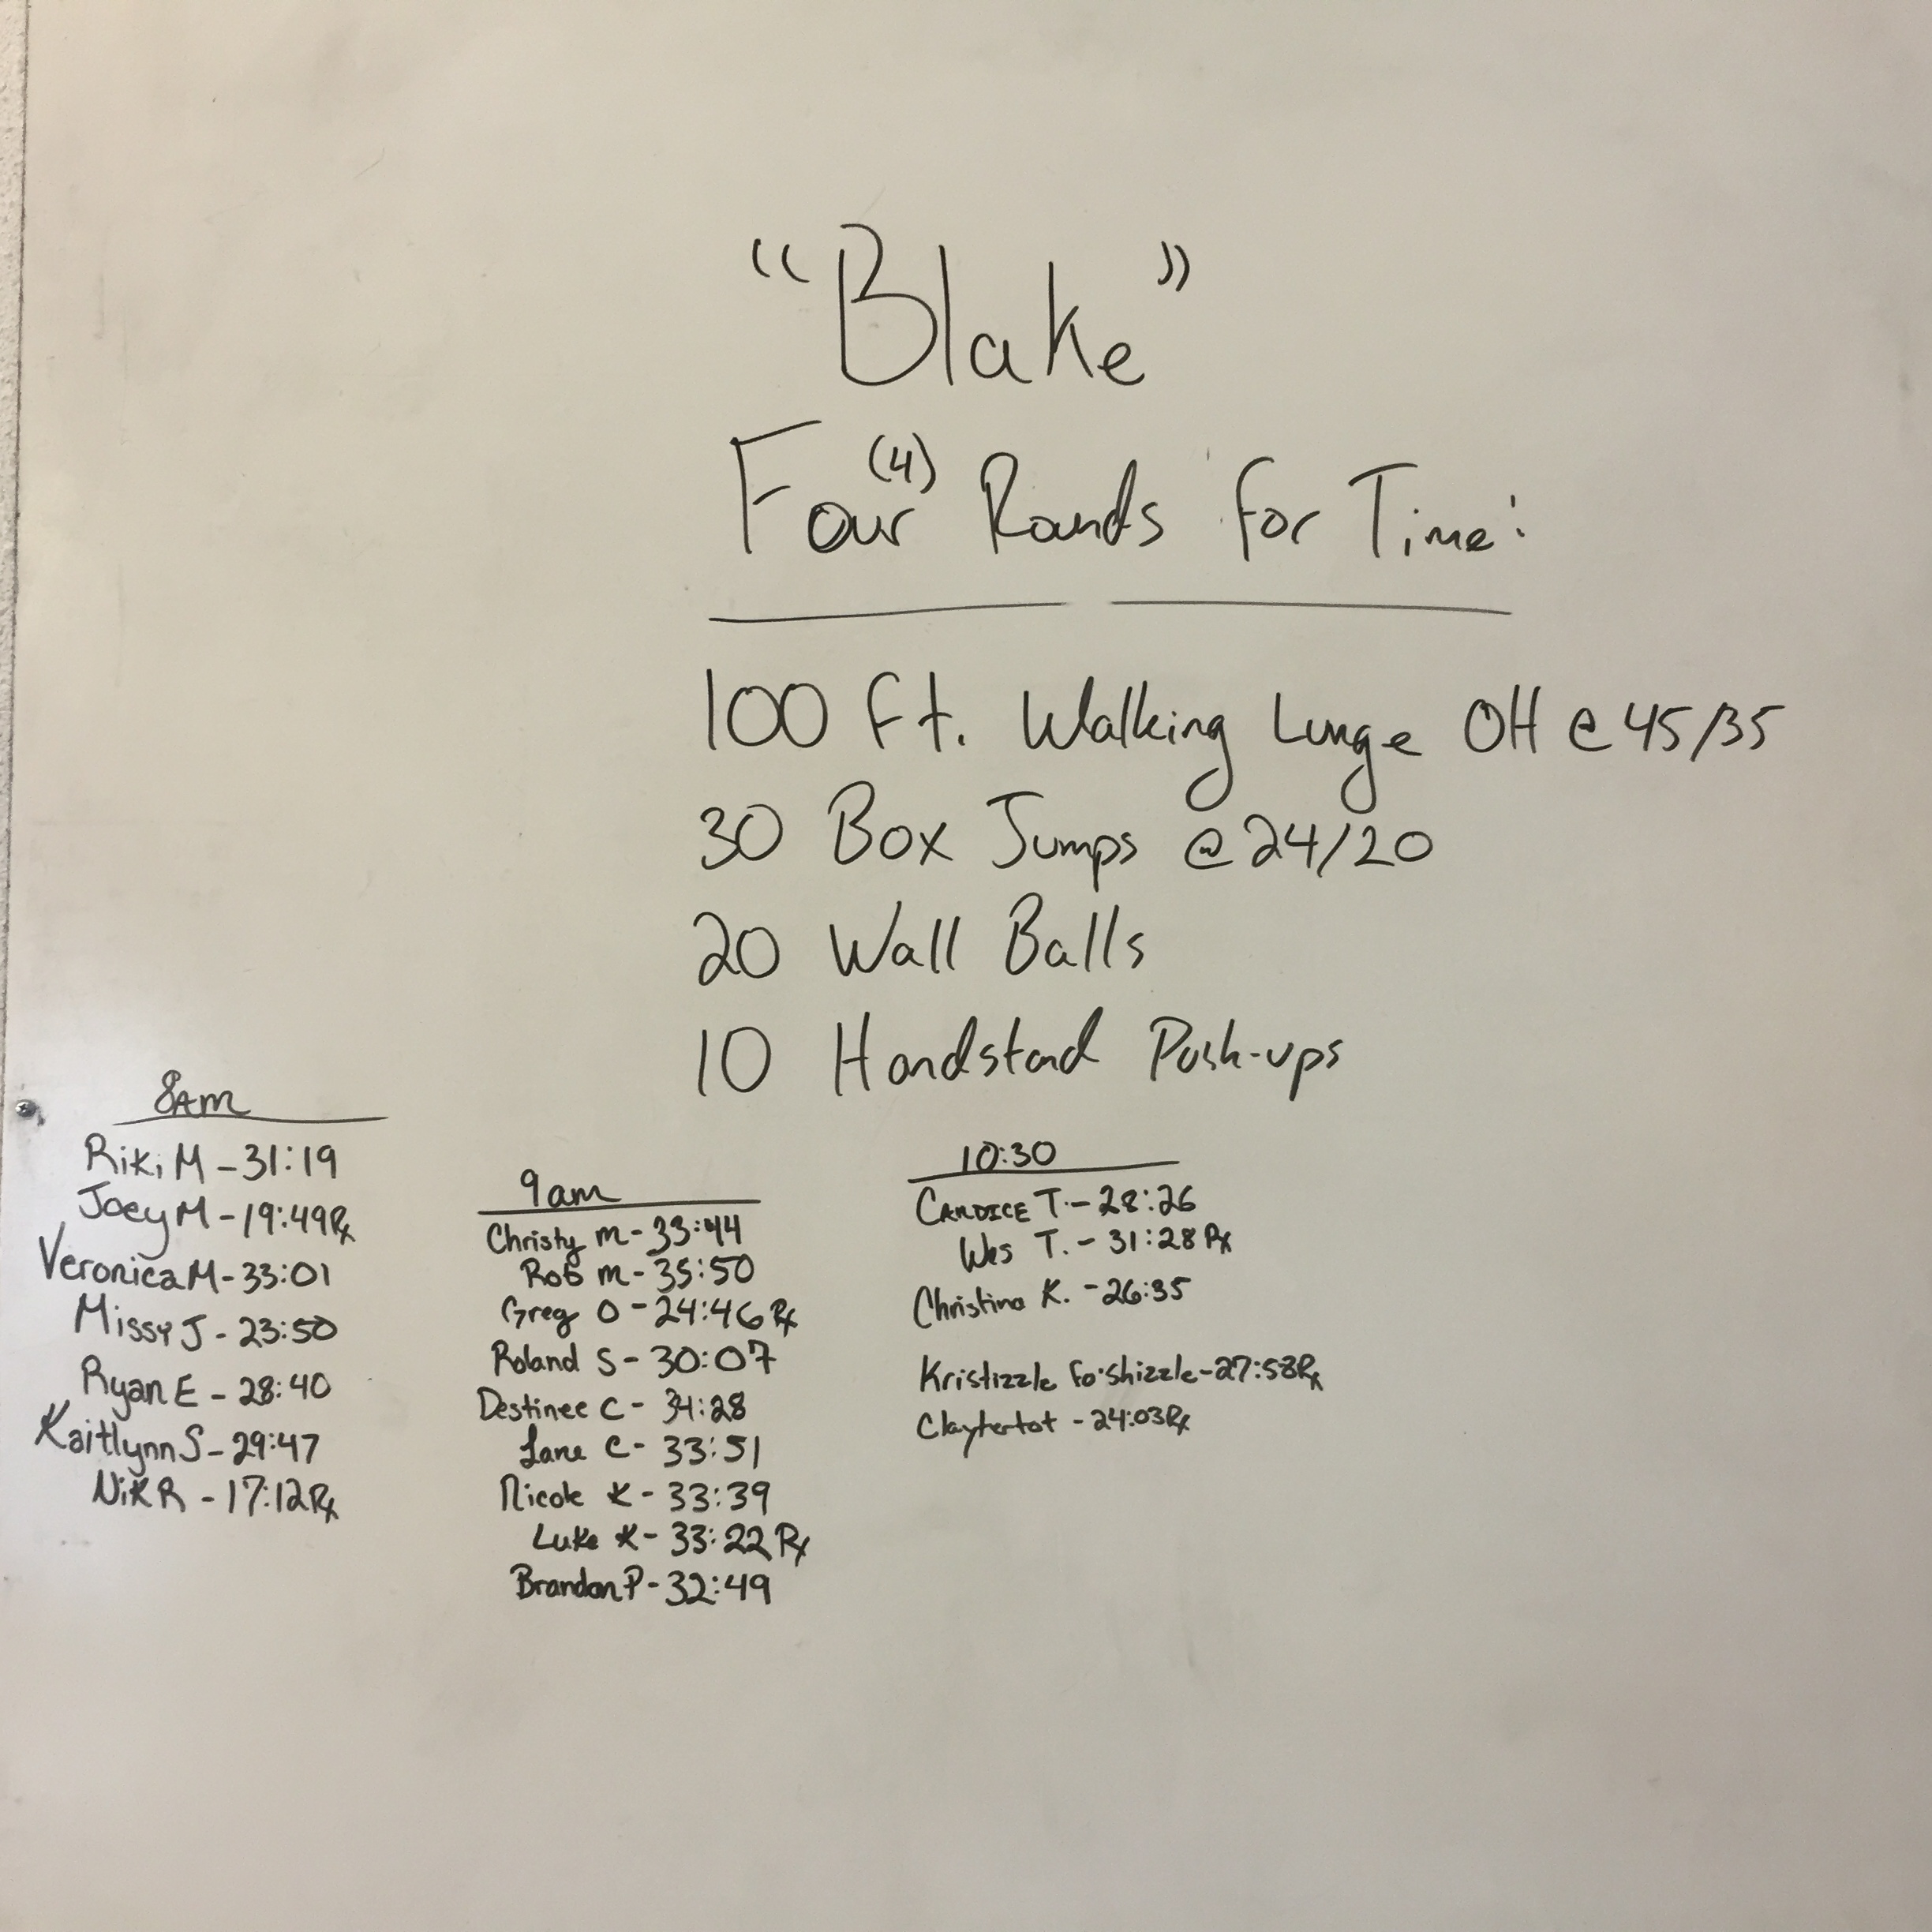 "Blake"
Four (4) Rounds for Time:
100 ft. Walking Lunge OH @ 45/35
30 Box Jumps @ 24/20
20 Wall Balls
10 Handstand Push-ups
8am
Riki M - 31:19
Joey M - 19:49 Rx
Veronica M - 33:01
Missy J - 23:50
Ryan E - 28:40
Kaitlynn S - 29:47
Nik R - 17:12 Rx
9am
Christy M - 33:44
Rob M - 35:50
Greg O - 24:46 Rx
Roland S - 30:07
Destinee C - 34:28
Lane C - 33:51
Nicole K - 33:39
Luke K - 33:22 Rx
Brandon P - 32:49
10:30
CANDICE T. - 28:26
Wes T. - 31:28 Rx
Christina K. - 26:35
Kristizzle Fo'shizzle - 27:58 Rx
Claytertot - 24:03 Rx